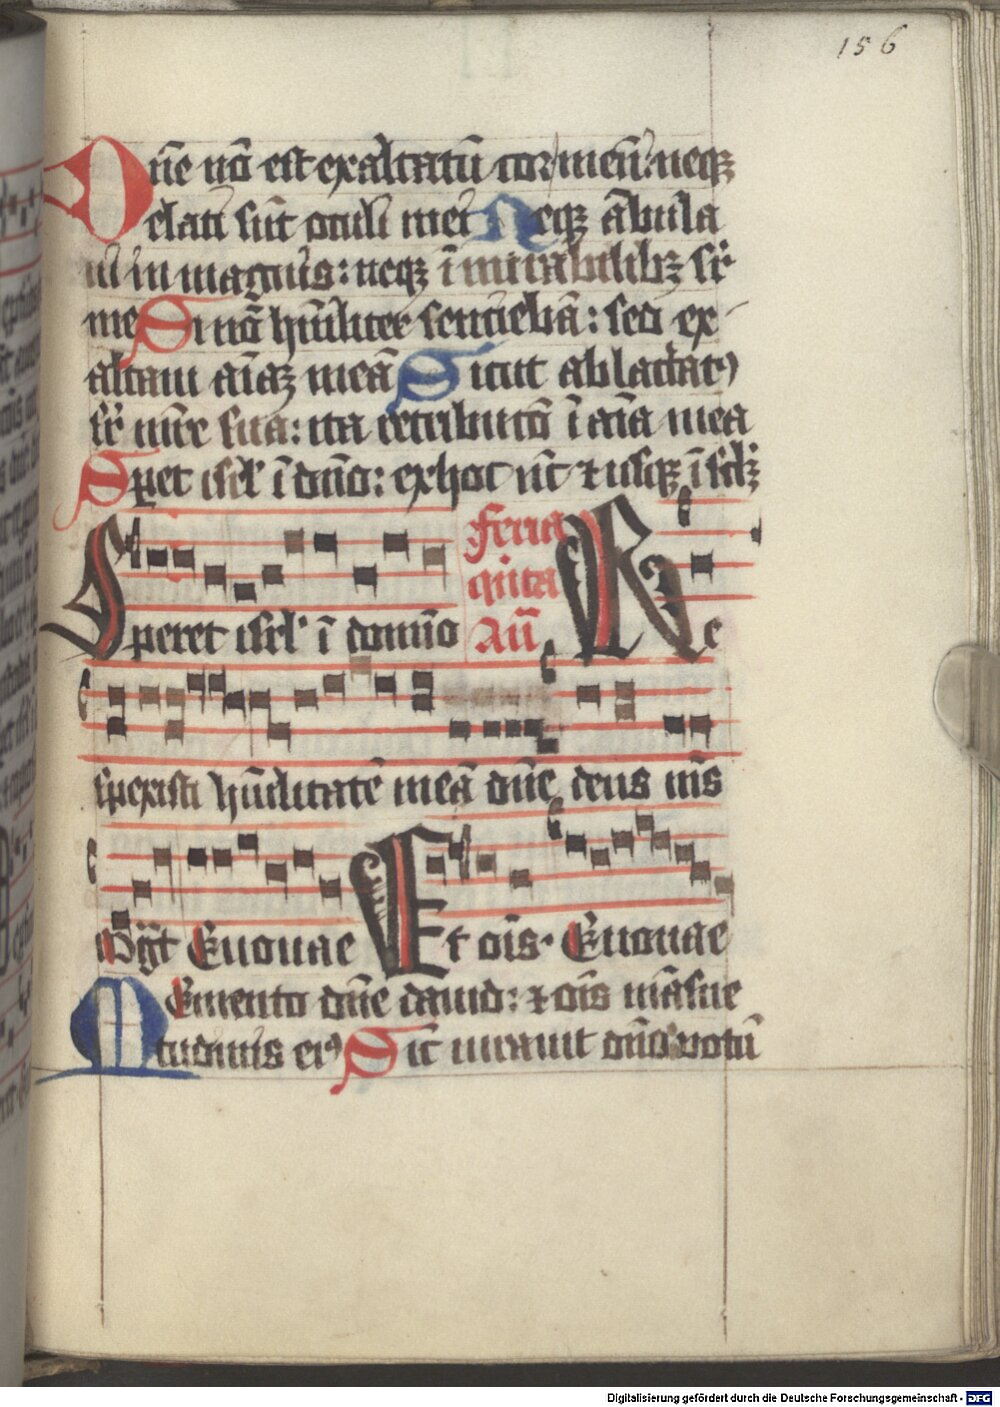 156
Dn̄e nō est exaltatū cor meū: neqꝫ
elati sūt oculi mei Neqꝫ ābula
ui in magnis: neqꝫ ī mirabilibꝫ sr̄
me Si nō hūiliter sentiebā: sed ex
altaui aīaꝫ meā Sicut ablactatꝰ
sr̄ mr̄e sua: ita retributō ī aīa mea
Speͣt isrl' ī dn̄o: ex hoc nūc ⁊ usqꝫ ī sclꝫ
Speret isrl' ī domīo feria quīta Aū Re
spexisti hūilitatē meā dn̄e deus m̄s
Euouae Et oīs. Euouae
Memento dn̄e dauid: ⁊ oīs māsue
tudinis eiꝰ Sic̄ iurauit dn̄o uotū
Digitalisierung gefördert durch die Deutsche Forschungsgemeinschaft - DFG